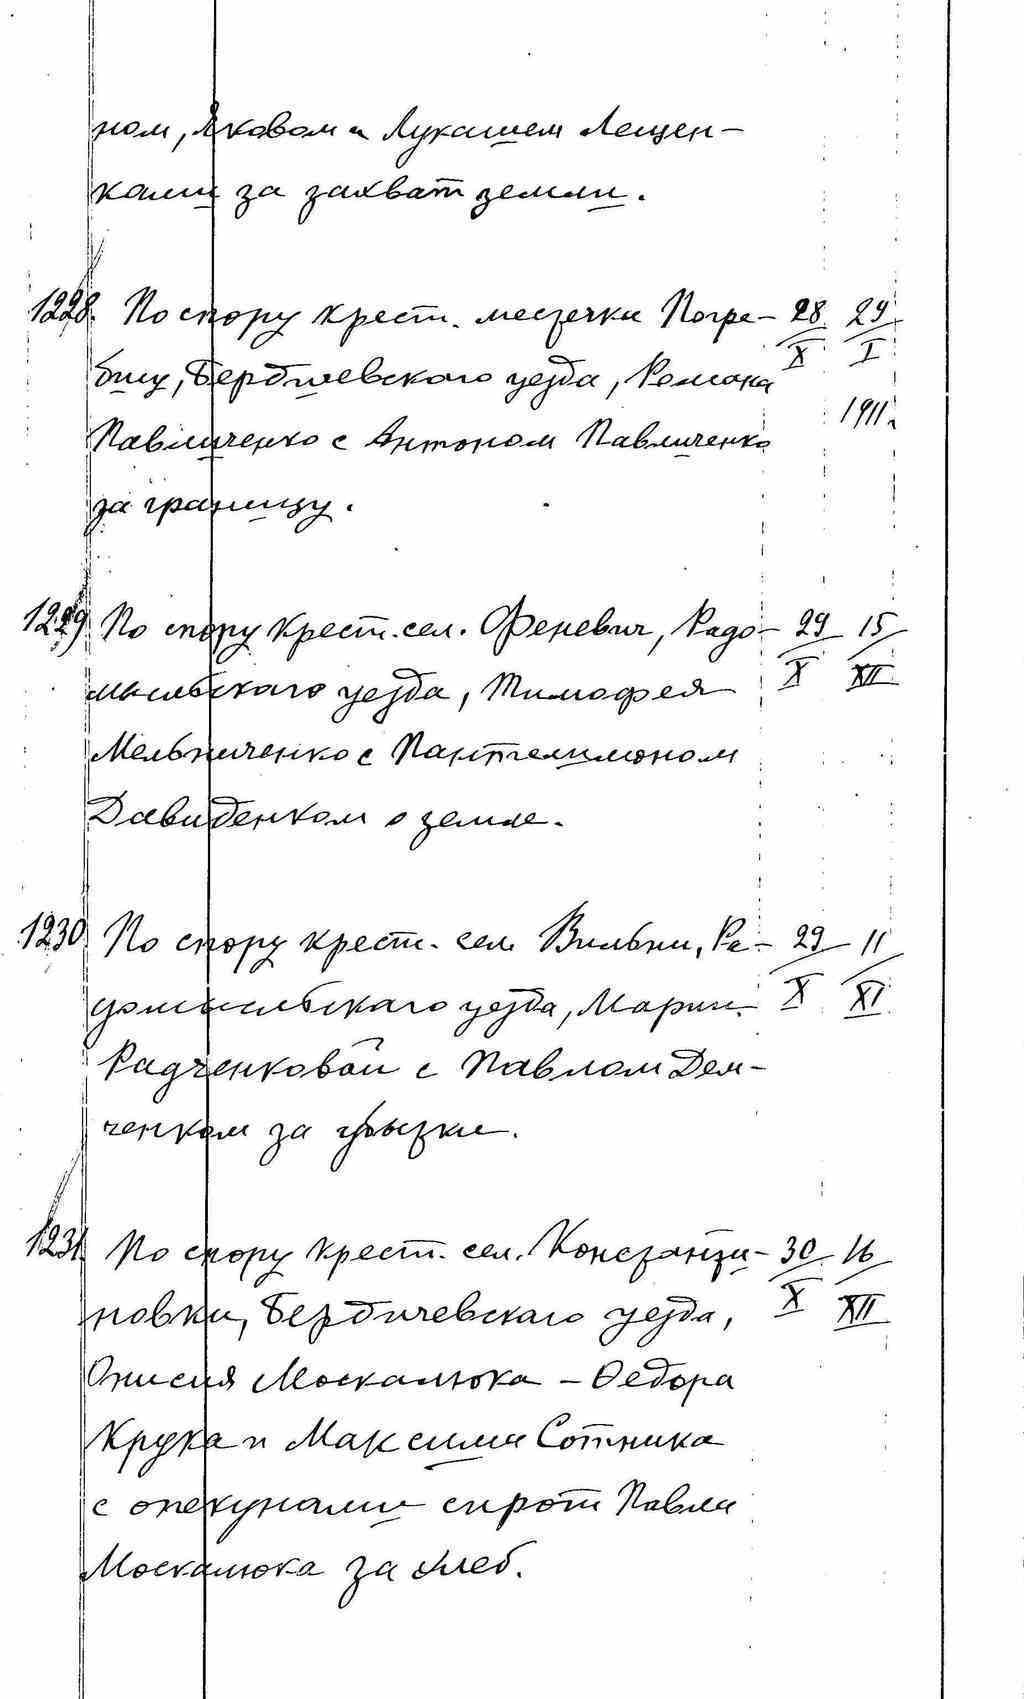 ном, Яковом и Лукашем Лещен-
ками за захват земли.
1228. По спору крест. местечка Погре- 28 29
бищ, Бердичевского уезда, Романа X I
Павличенко с Антоном Павличенко 1911г.
за границу.
1229 По спору крест. сел. Феневич, Радо- 29 15
мысльскаго уезда, Тимофея X XII
Мельниченко с Пантелимоном
Давиденком о земле.
1230 По спору крест. сел. Вильни, Ра- 29 11
домысльскаго уезда, Марии X XI
Радченковой с Павлом Дем-
ченком за убытки.
1231 По спору крест. сел. Константи- 30 16
новки, Бердичевскаго уезда, X XII
Онисия Москалюка - Федора
Крука и Максима Сотника
с опекунами сирот Павла
Москалюка за хлеб.